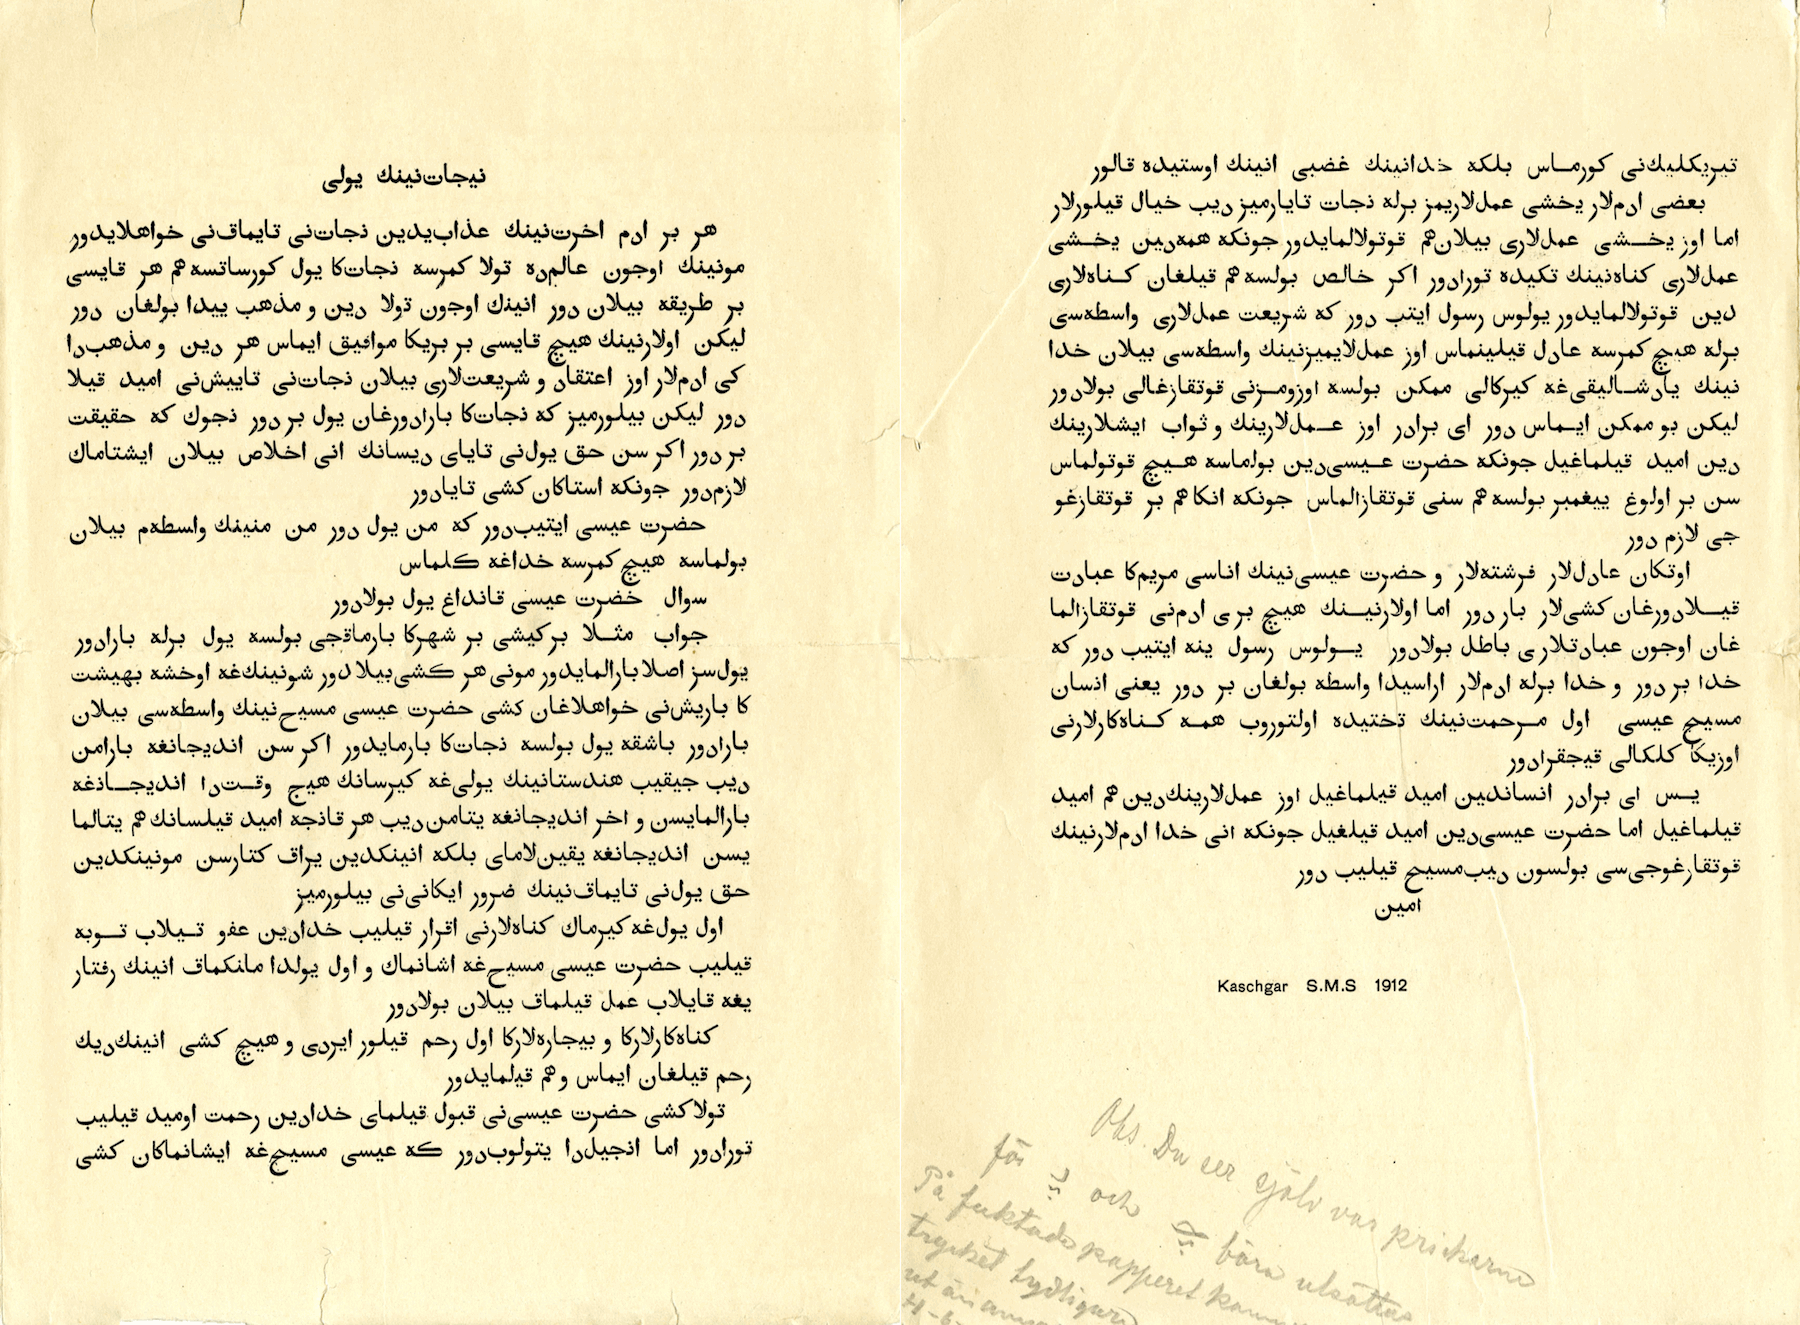 نیجات‌نینك یولی
هر بر ادم اخرت‌نینك عذاب‌یدین نجات‌نی تاپماق‌نی خواهلایدور
مونینك اوچون عالم‌ده تولا کمرسه نجات‌کا یول کورساتسه‌هم هر قایسی
بر طریقه بیلان دور انینك اوچون تولا دین و مذهب پیدا بولغان دور
لیکن اولارنینك هیچ قایسی بر بریکا موافیق ایماس هر دین و مذهب‌دا
کی ادم‌لار اوز اعتقاد و شریعت‌لاری بیلان نجات‌نی تاپیش‌نی امید قیلا
دور لیکن بیلورمیز که نجات‌کا بارادورغان یول بر دور نچوك که حقیقت
بر دور اکر سن حق یول‌نی تاپای دیسانك انی اخلاص بیلان ایشتاماك
لازم‌دور چونکه استاکان کشی تاپادور
حضرت عیسی ایتیب‌دور که من یول دور من منینك واسطه‌م بیلان
بولماسه هیچ کمرسه خداغه کلماس
سوال حضرت عیسی قانداغ یول بولادور
جواب مثلا برکیشی بر شهرکا بارماقچی بولسه یول برله بارادور
یول‌سز اصلا بارالمایدور مونی هر کشی بیلا دور شونینك‌غه اوخشه بهیشت
کا باریش‌نی خواهلاغان کشی حضرت عیسی مسیح‌نینك واسطه‌سی بیلان
بارادور باشقه یول بولسه نجات‌کا بارمایدور اکر سن اندیجانغه بارامن
دیب چیقیب هندستانینك یولی‌غه کیرسانك هیچ وقت‌دا اندیجانغه
بارالمایسن و اخر اندیجانغه یتامن دیب هر قانچه امید قیلسانك هم یتالما
یسن اندیجانغه یقین‌لامای بلکه انینکدین یراق کتارسن مونینکدین
حق یول‌نی تاپماق‌نینك ضرور ایکانی‌نی بیلورمیز
اول یول‌غه کیرماك کناه‌لارنی اقرار قیلیب خدادین عفو تیلاب توبه
قیلیب حضرت عیسی مسیح‌غه اشانماك و اول یولدا مانکماق انینك رفتار
یغه قاپلاب عمل قیلماق بیلان بولادور
کناه‌کارلارکا و بیچاره‌لارکا اول رحم قیلور ایردی و هیچ کشی انینك‌دیك
رحم قیلغان ایماس و هم قیلمایدور
تولا کشی حضرت عیسی‌نی قبول قیلمای خدادین رحمت اومید قیلیب
تورادور اما انجیل‌دا یتولوب‌دور که عیسی مسیح‌غه ایشانماکان کشی
تیریکلیك‌نی کورماس بلکه خدانینك غضبی انینك اوستیده قالور
بعضی ادم‌لار یخشی عمل‌لاریمز برله نجات تاپارمیز دیب خیال قیلورلار
اما اوز یخشی عمل‌لاری بیلان‌هم قوتولالمایدور چونکه همه‌دین یخشی
عمل‌لاری کناه‌نینك تکیده تورادور اکر خالص بولسه‌هم قیلغان کناه‌لاری
دین قوتولالمایدور پولوس رسول ایتب دور که شریعت عمل‌لاری واسطه‌سی
برله هیچ کمرسه عادل قیلینماس اوز عمل‌لایمیزنینك واسطه‌سی بیلان خدا
نینك پادشالیقی‌غه کیرکالی ممکن بولسه اوزومزنی قوتقازغالی بولادور
لیکن بو ممکن ایماس دور ای برادر اوز عمل‌لارینك و ثواب ایشلارینك
دین امید قیلماغیل چونکه حضرت عیسی‌دین بولماسه هیچ قوتولماس
سن بر اولوغ پیغمبر بولسه‌هم سنی قوتقازالماس چونکه انکاهم بر قوتقازغو
چی لازم دور
اوتکان عادل‌لار فرشته‌لار و حضرت عیسی‌نینك اناسی مریم‌کا عبادت
قیلادورغان کشی‌لار بار دور اما اولارنینك هیچ بری ادم‌نی قوتقازالما
غان اوچون عبادتلاری باطل بولادور پولوس رسول ینه ایتیب دور که
خدا بر دور و خدا برله ادم‌لار اراسیدا واسطه بولغان بر دور یعنی انسان
مسیح عیسی اول مرحمت‌نینك تختیده اولتوروب همه کناه‌کارلارنی
اوزیکا کلکالی قیچقرادور
پس ای برادر انساندین امید قیلماغیل اوز عمل‌لارینك‌دین هم امید
قیلماغیل اما حضرت عیسی‌دین امید قیلغیل چونکه انی خدا ادم‌لارنینك
قوتقارغوچی‌سی بولسون دیب‌مسیح قیلیب دور
امین
Kaschgar S.M.S 1912
Obs. Du ser själv var prickarna
för پ och چ böra utsättas
På fuktade papperet
trycket tydligare